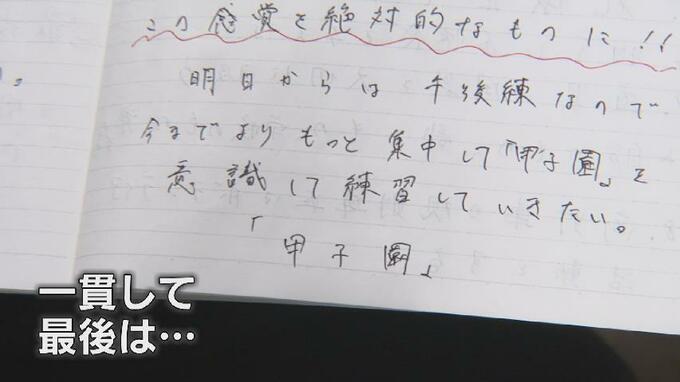 この感覚を絶対的なものに!!
明日からは午後練なので
今までよりもっと集中して「甲子園」を
意識して練習していきたい。
「甲子園」
一貫して
最後は…